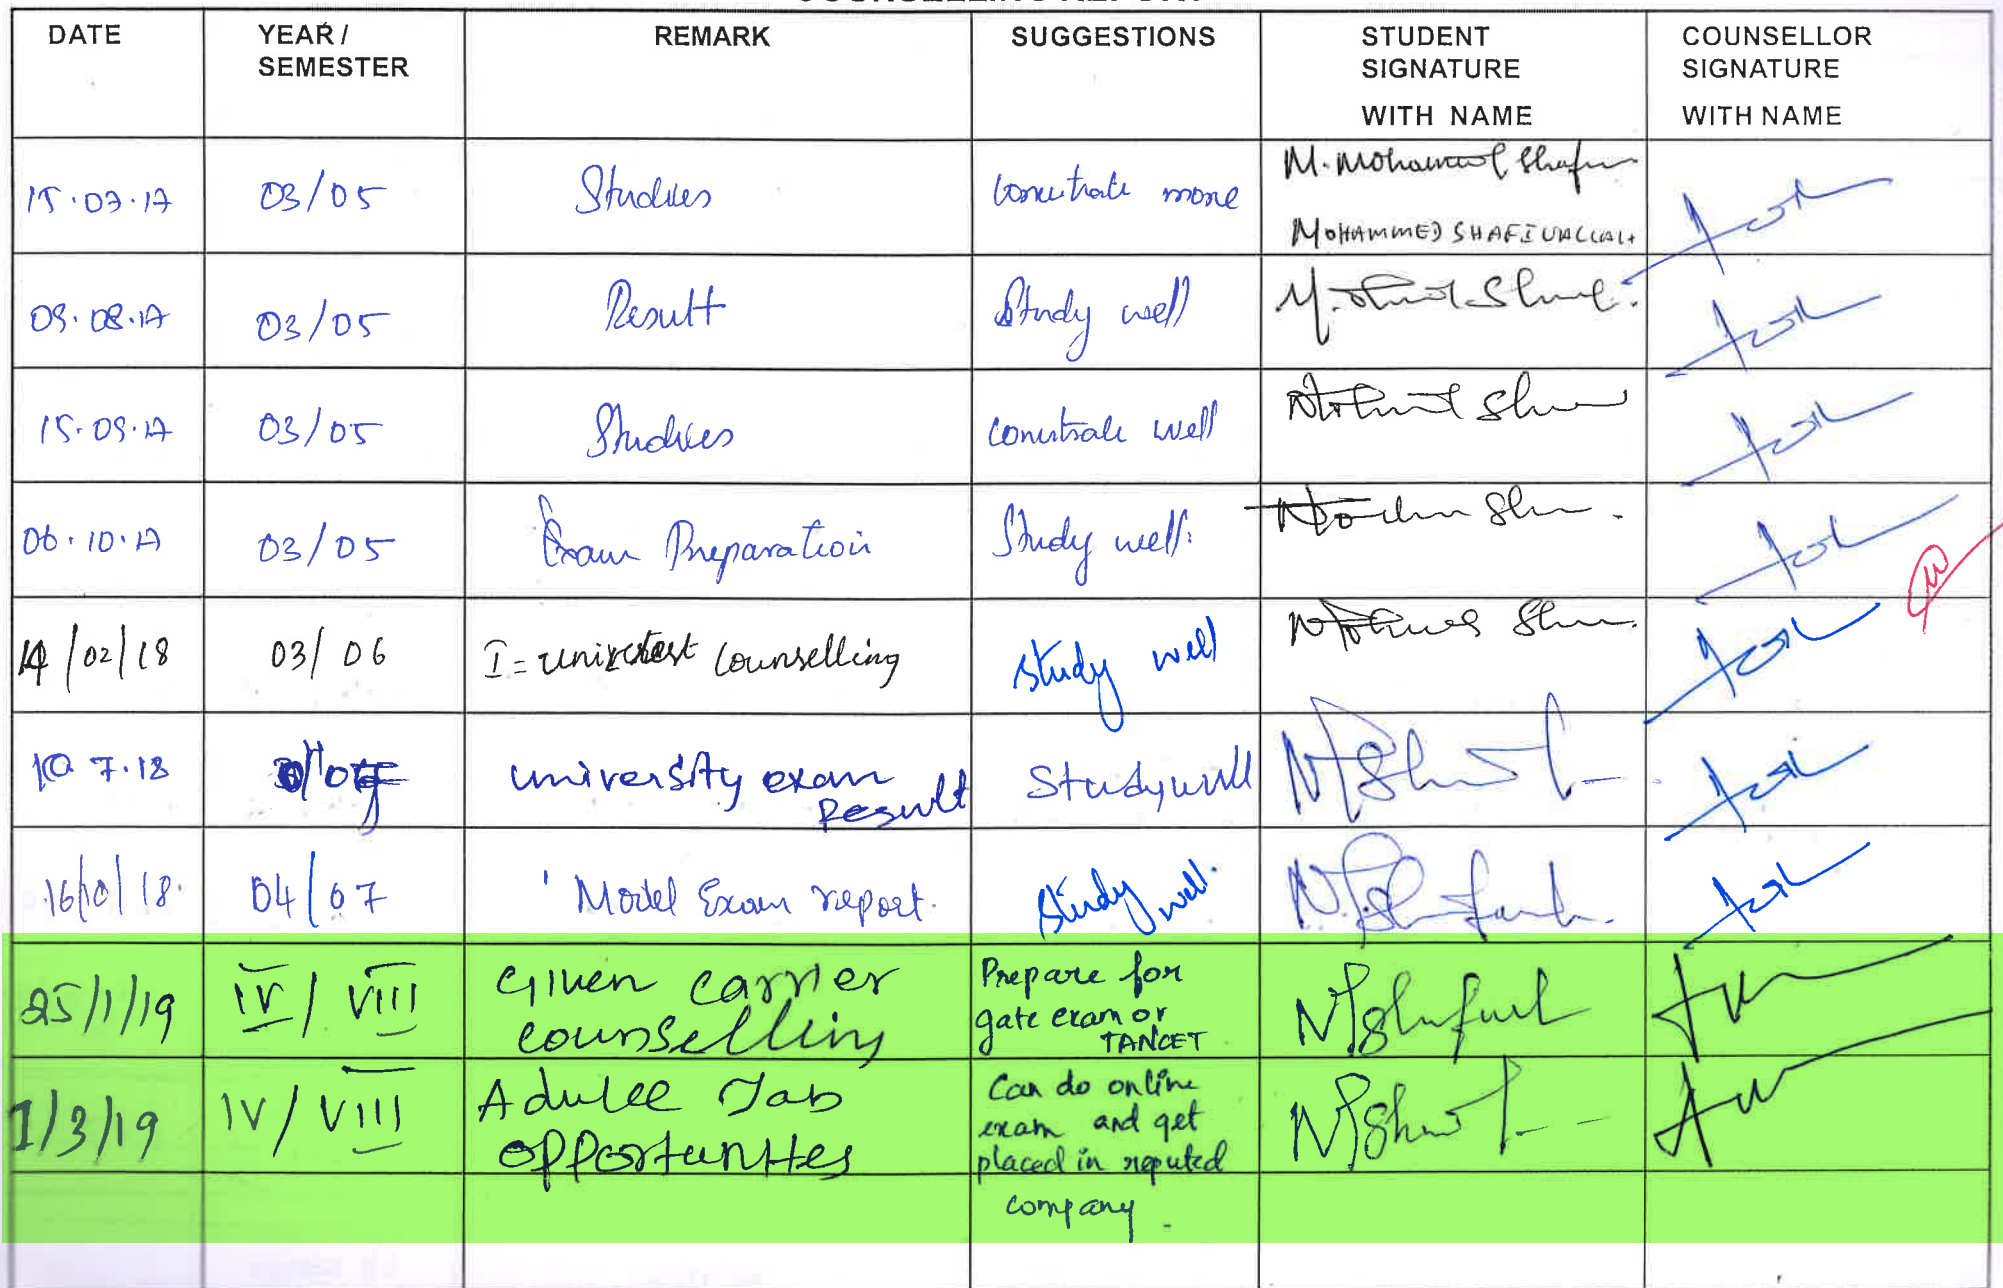 COUNSELLING REPORT
DATE YEAR / SEMESTER REMARK SUGGESTIONS STUDENT SIGNATURE WITH NAME COUNSELLOR SIGNATURE WITH NAME
15.07.17 03/05 Studies concentrate more M. Mohammed Shafi
MOHAMMED SHAFIUALLAH
09.08.17 03/05 Result Study well
15.09.17 03/05 Studies concentrate well
06.10.17 03/05 Exam Preparation Study well.
14/02/18 03/06 I - unit test counselling study well
10.7.18 university exam Result Study well
16/10/18. 04/07 Model Exam report. study well.
25/1/19 IV / VIII Given carrier
counselling
Prepare for
gate exam or
TANCET
1/3/19 IV / VIII Job
opportunities
Can do online
exam and get
placed in reputed
company.